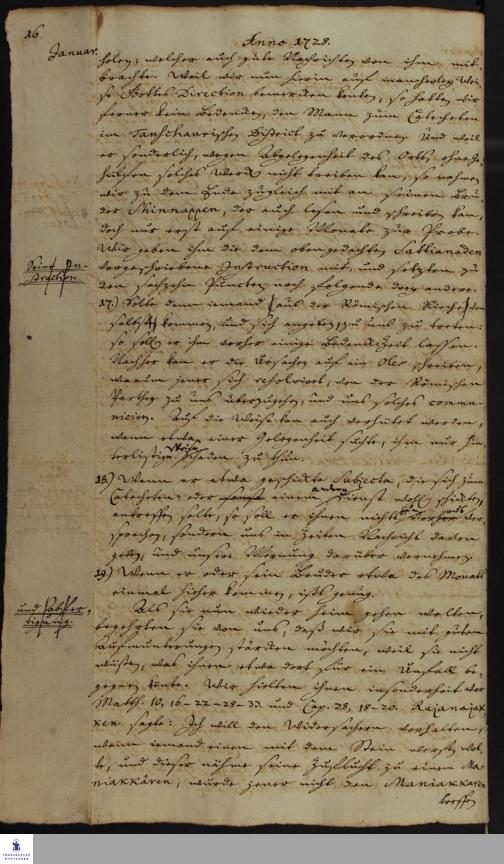 16
Anno 1728.
Januar.
holen; welcher auch gute Nachrichten von ihm mit-
brachte. Weil wir nun hierin auf mancherley Wei-
se Gottes Direction bemercken konten, so hatten wir
ferner kein Bedencken, den Mann zum Catecheten
im Tanschaurischen District zu verordnen. Und weil
er sonderlich, wegen Abgelegenheit des Orts, ohne Ge-
hülfen solches Werck nicht treiben kan, so nahmen
wir zu dem Ende zugleich mit an seinen Bru-
der Schinnappen, der auch lesen und schreiben kan,
doch nur erst auf einige Monate zur Probe.
Wir gaben ihm die dem obengedachten Sattianaden
Seine In-
struction.
vorgeschriebene Instruction mit, und setzten zu
den sechzehn Puncten noch folgende drey andere.
17.) Solte dann jemand aus der Römischen Kirche von
selbst kommen, und sich angeben, zu uns zu treten:
so soll er ihm vorher einige Bedenckzeit lassen.
Nachher kan er die Ursachen auf ein Oles schreiben,
warum jener sich resolviret, von der Römischen
Parthey zu uns überzugehen, und uns solches commu-
niciren. Auf die Weise kan auch verhütet werden,
wenn etwa einer Gelegenheit suchte, ihm nur hin-
terlistiger Weise Schaden zu thun.
18.) Wenn er etwa geschickte Subjecta, die sich zum
Catecheten- oder sonst einem andern Dienst wohl schickten,
antreffen solte, so soll er ihnen nichts vorher ver-
sprechen, sondern uns in Zeiten Nachricht davon
geben, und unsere Meynung darüber vernehmen.
19.) Wenn er oder sein Bruder etwa des Monats
einmal hieher kommen, ists genug.
und Abfer-
tigung.
Als sie nun wieder heim gehen wolten,
begehrten sie von uns, daß wir sie mit guten
Aufmunterungen stärcken möchten, weil sie nicht
wüsten, was ihnen etwa dort für ein Unfall be-
gegnen könte. Wir hielten ihnen insonderheit vor
Matth. 10, 16-22-28-33. und Cap. 28, 18-20. Rajanaja-
xen sagte: Ich will den Widersachern vorhalten,
wenn jemand einen mit dem Stein werfen wol-
te, und dieser nähme seine Zuflucht zu einem Ma-
niakkáren, würde jener nicht den Maniakkaren
treffen